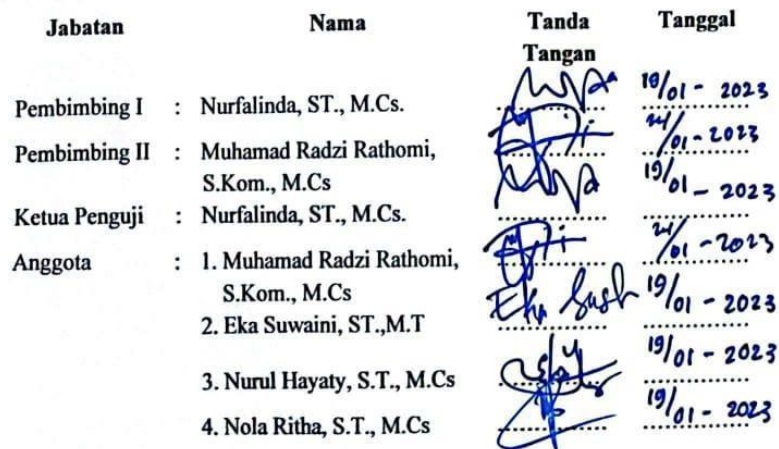 Jabatan Nama Tanda Tangan Tanggal
Pembimbing I : Nurfalinda, ST., M.Cs. 19/01 - 2023
Pembimbing II : Muhamad Radzi Rathomi, /01 - 2023
S.Kom., M.Cs 19/01 - 2023
Ketua Penguji : Nurfalinda, ST., M.Cs.
Anggota : 1. Muhamad Radzi Rathomi, /01 - 2023
S.Kom., M.Cs Eka 19/01 - 2023
2. Eka Suwaini, ST.,M.T
3. Nurul Hayaty, S.T., M.Cs 19/01 - 2023
4. Nola Ritha, S.T., M.Cs 19/01 - 2023